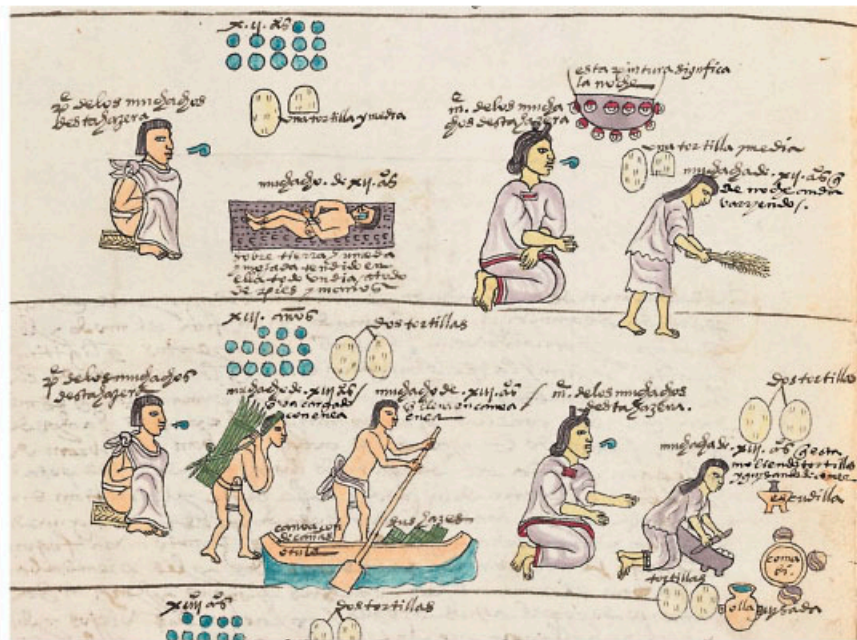 xii. aͦs
pͤ. de los muchachos
desta hazera
una tortilla y media
muchacho. de xii. aͦs
sobre tierra y umeda
y mojada tendido en
ella todo un dia, atado
de pies y manos
mͤ. de los mucha
chos desta hazera
esta pintura significa
la noche
una tortilla y media
muchacha de. xii. aͦs q̄
de noche anda
varriendo.
xiii. años
dos tortillas
pͤ. de los muchachos
desta hazera
muchacho de. xiii. aͦs
q̄ va cargado
con enea
muchacho de. xiii. aͦs
q̄ lleva en canoa
enea
canoa con
de cañas
o tule
sus hazes
mͤ. de los muchachos
desta hazera.
dos tortillas
muchacha de. xiii. aͦs q̄ esta
moliendo tortillas
y guisando de comer
escudilla
coma
tortillas
olla guisada
xiiii aͦs
dos tortillas